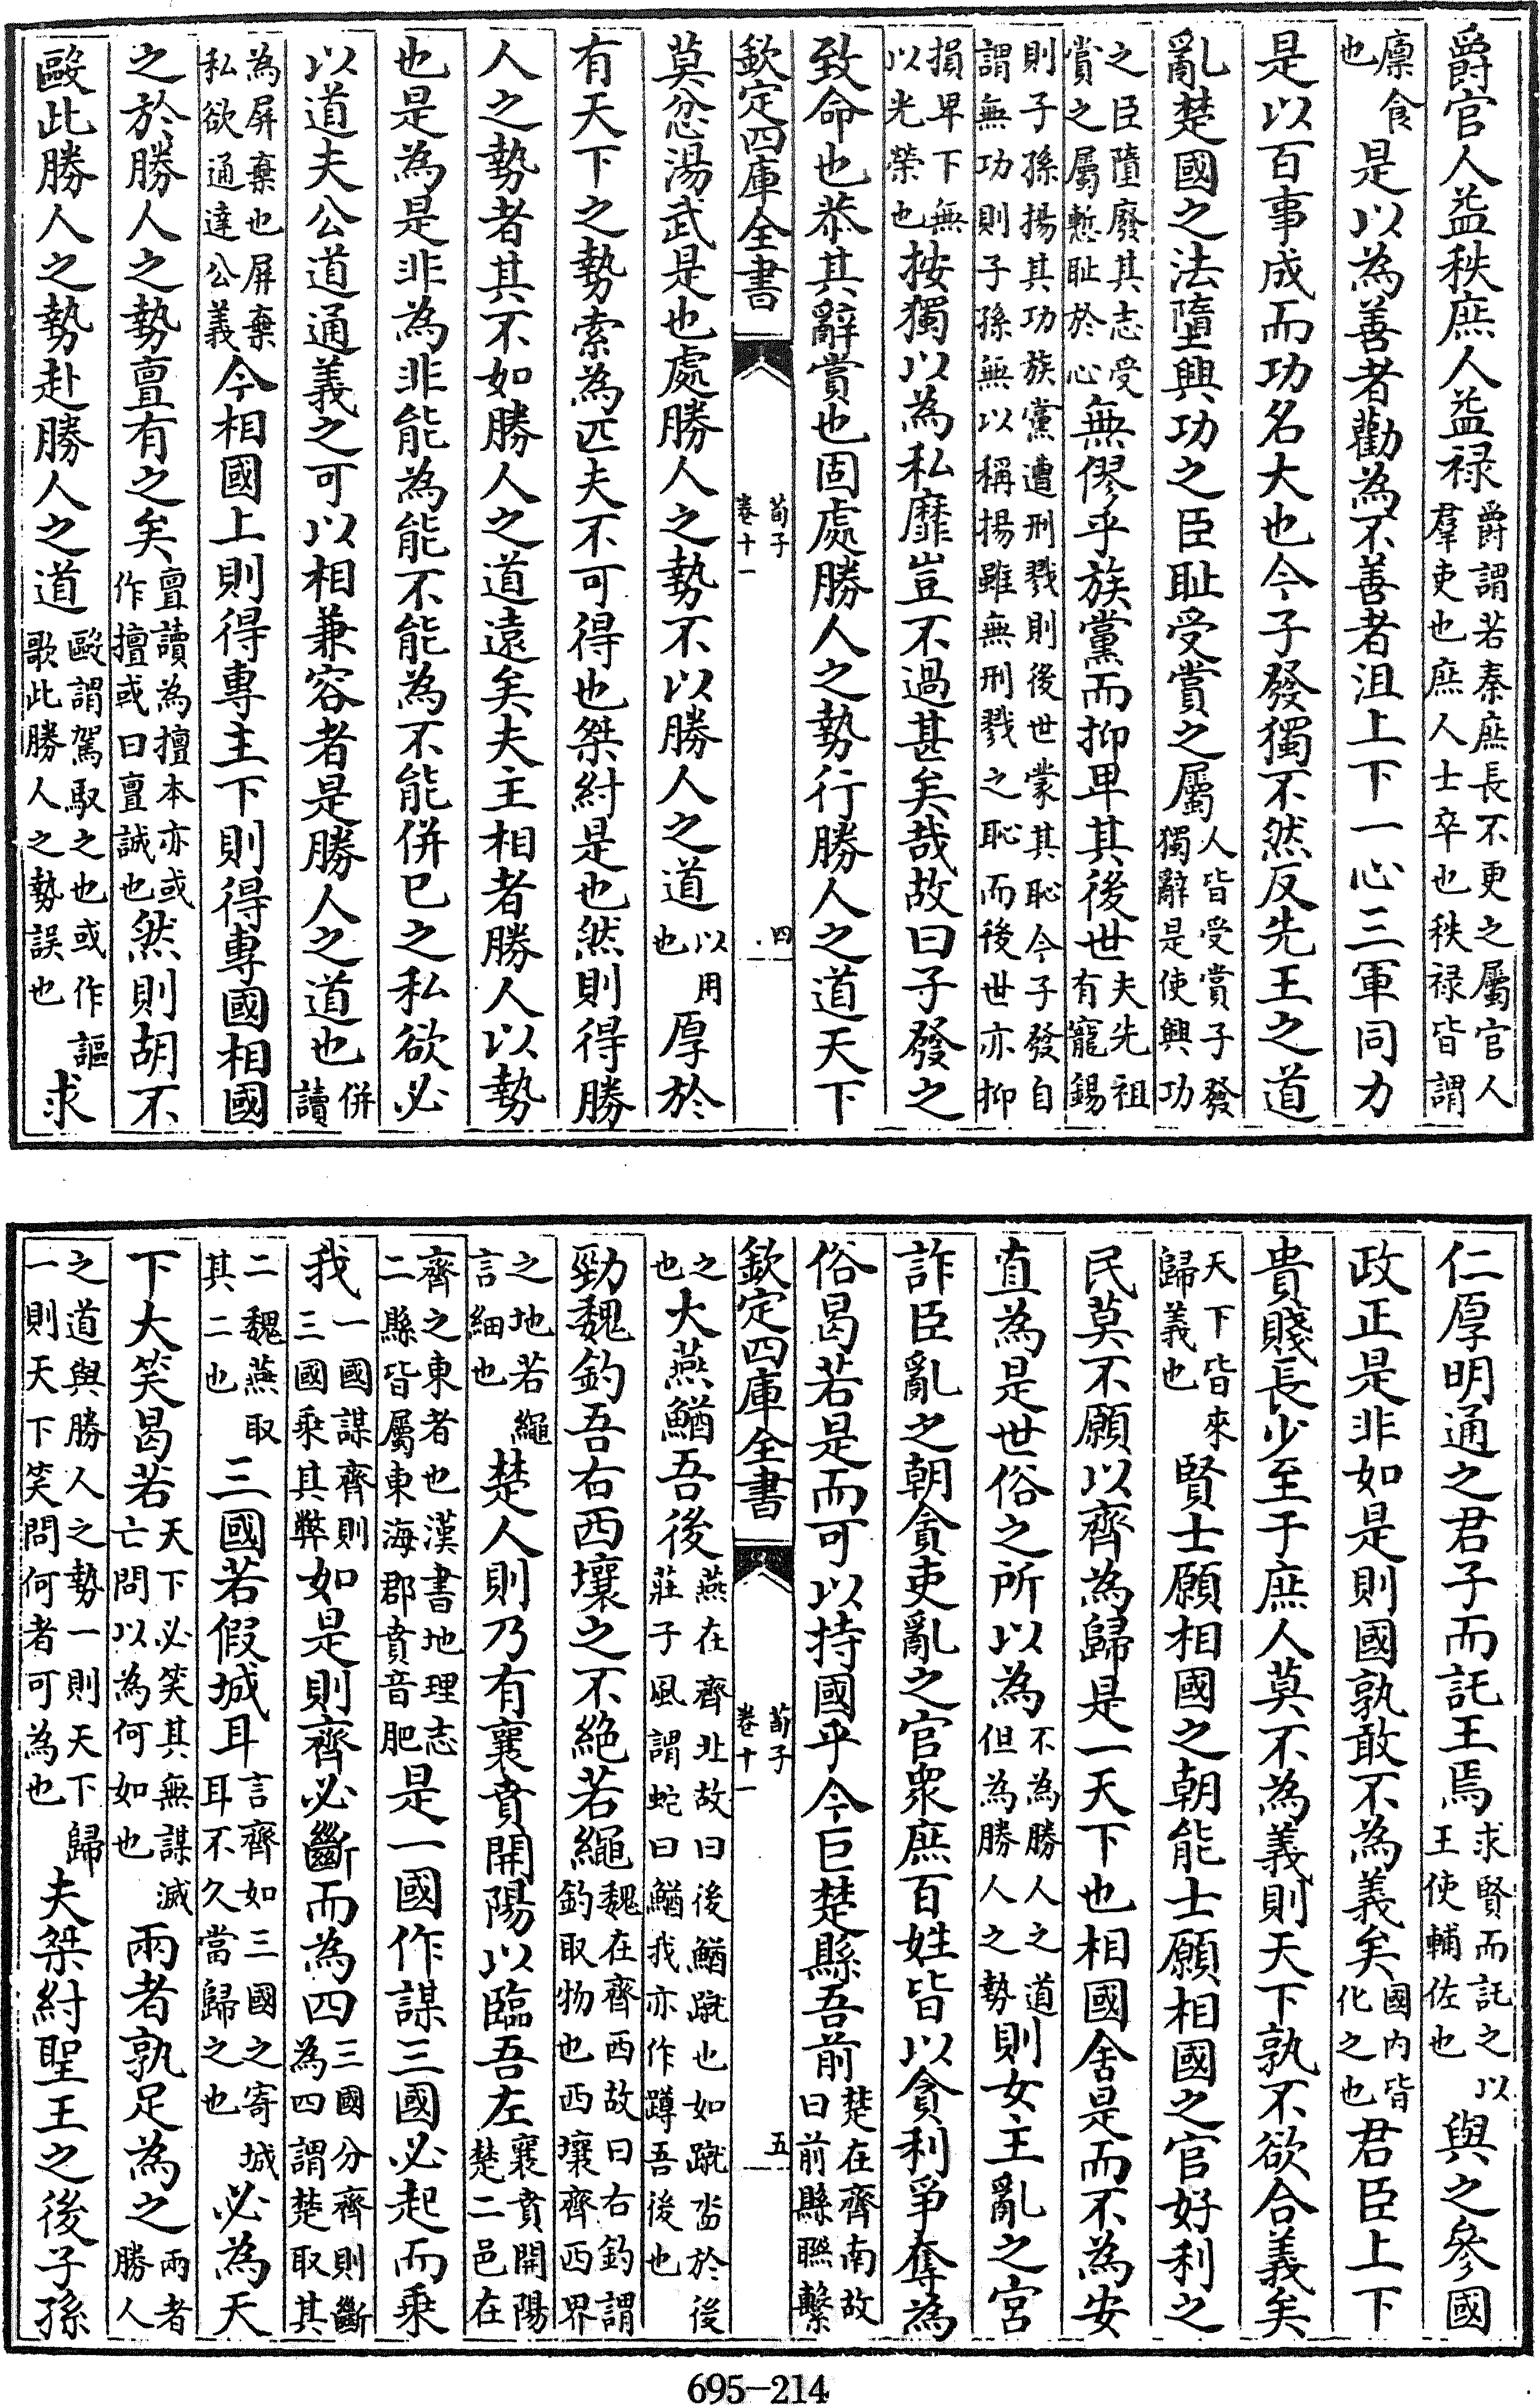 爵官人益秩庶人益禄爵謂若秦庶長不更之屬官人羣吏也庶人士卒也秩禄皆謂
廪食也是以為善者勸為不善者沮上下一心三軍同力
是以百事成而功名大也今子發獨不然反先王之道
亂楚國之法墮興功之臣耻受賞之屬人皆受賞子發獨辭是使興功
之臣墮廢其志受賞之屬慙耻於心無僇乎族黨而抑卑其後世夫先祖有寵錫
則子孫揚其功族黨遭刑戮則後世蒙其恥今子發自謂無功則子孫無以稱揚雖無刑戮之恥而後世亦抑
損卑下無以光榮也按獨以為私靡豈不過甚矣哉故曰子發之
致命也恭其辭賞也固處勝人之勢行勝人之道天下
欽定四庫全書 荀子 卷十一 四
莫忿湯武是也處勝人之勢不以勝人之道以用也厚於
有天下之勢索為匹夫不可得也桀紂是也然則得勝
人之勢者其不如勝人之道遠矣夫主相者勝人以勢
也是為是非為非能為能不能為不能併已之私欲必
以道夫公道通義之可以相兼容者是勝人之道也併讀
為屏棄也屏棄私欲通達公義今相國上則得專主下則得專國相國
之於勝人之勢亶有之矣亶讀為擅本亦或作擅或曰亶誠也然則胡不
毆此勝人之勢赴勝人之道毆謂駕馭之也或作謳歌此勝人之勢誤也求
仁厚明通之君子而託王焉求賢而託之以王使輔佐也與之參國
政正是非如是則國孰敢不為義矣國内皆化之也君臣上下
貴賤長少至于庶人莫不為義則天下孰不欲合義矣
天下皆來歸義也賢士願相國之朝能士願相國之官好利之
民莫不願以齊為歸是一天下也相國舍是而不為安
直為是世俗之所以為不為勝人之道但為勝人之勢則女主亂之宮
詐臣亂之朝貪吏亂之官衆庶百姓皆以貪利爭奪為
俗曷若是而可以持國乎今巨楚縣吾前楚在齊南故曰前縣聯繫
欽定四庫全書 荀子 卷十一 五
之也大燕鰌吾後燕在齊北故曰後鰌蹴也如蹴沓於後莊子風謂蛇曰鰌我亦作蹲吾後也
勁魏鈎吾右西壤之不絶若繩魏在齊西故曰右鈎謂鈎取物也西壤齊西界
之地若繩言細也楚人則乃有襄賁開陽以臨吾左襄賁開陽楚二邑在
齊之東者也漢書地理志二縣皆屬東海郡賁音肥是一國作謀三國必起而乘
我一國謀齊則三國乘其弊如是則齊必斷而為四三國分齊則斷為四謂楚取其
二魏燕取其二也三國若假城耳言齊如三國之寄城耳不久當歸之也必為天
下大笑曷若天下必笑其無謀滅亡問以為何如也兩者孰足為之兩者勝人
之道與勝人之勢一則天下歸一則天下笑問何者可為也夫桀紂聖王之後子孫
695-214